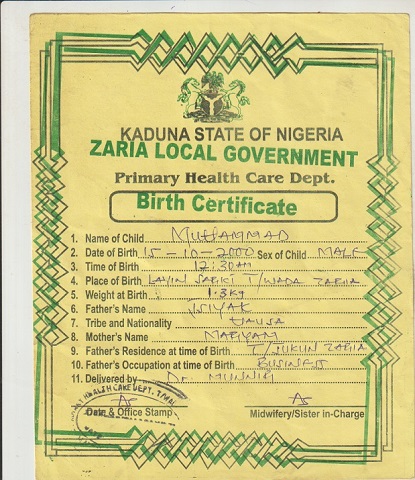 KADUNA STATE OF NIGERIA
ZARIA LOCAL GOVERNMENT
Primary Health Care Dept.
Birth Certificate
1. Name of Child MUHAMMAD
2. Date of Birth 15-10-2000 Sex of Child MALE
3. Time of Birth 12:30AM
4. Place of Birth LAYIN SARKI T/WADA ZARIA
5. Weight at Birth 1.3kg
6. Father's Name
7. Tribe and Nationality HAUSA
8. Mother's Name MARIYAM
9. Father's Residence at time of Birth T/JUKUN ZARIA
10. Father's Occupation at time of Birth BUSINESS
11. Delivered by Dr.
HEALTH CARE DEPT.
Date & Office Stamp Midwifery/Sister in-Charge